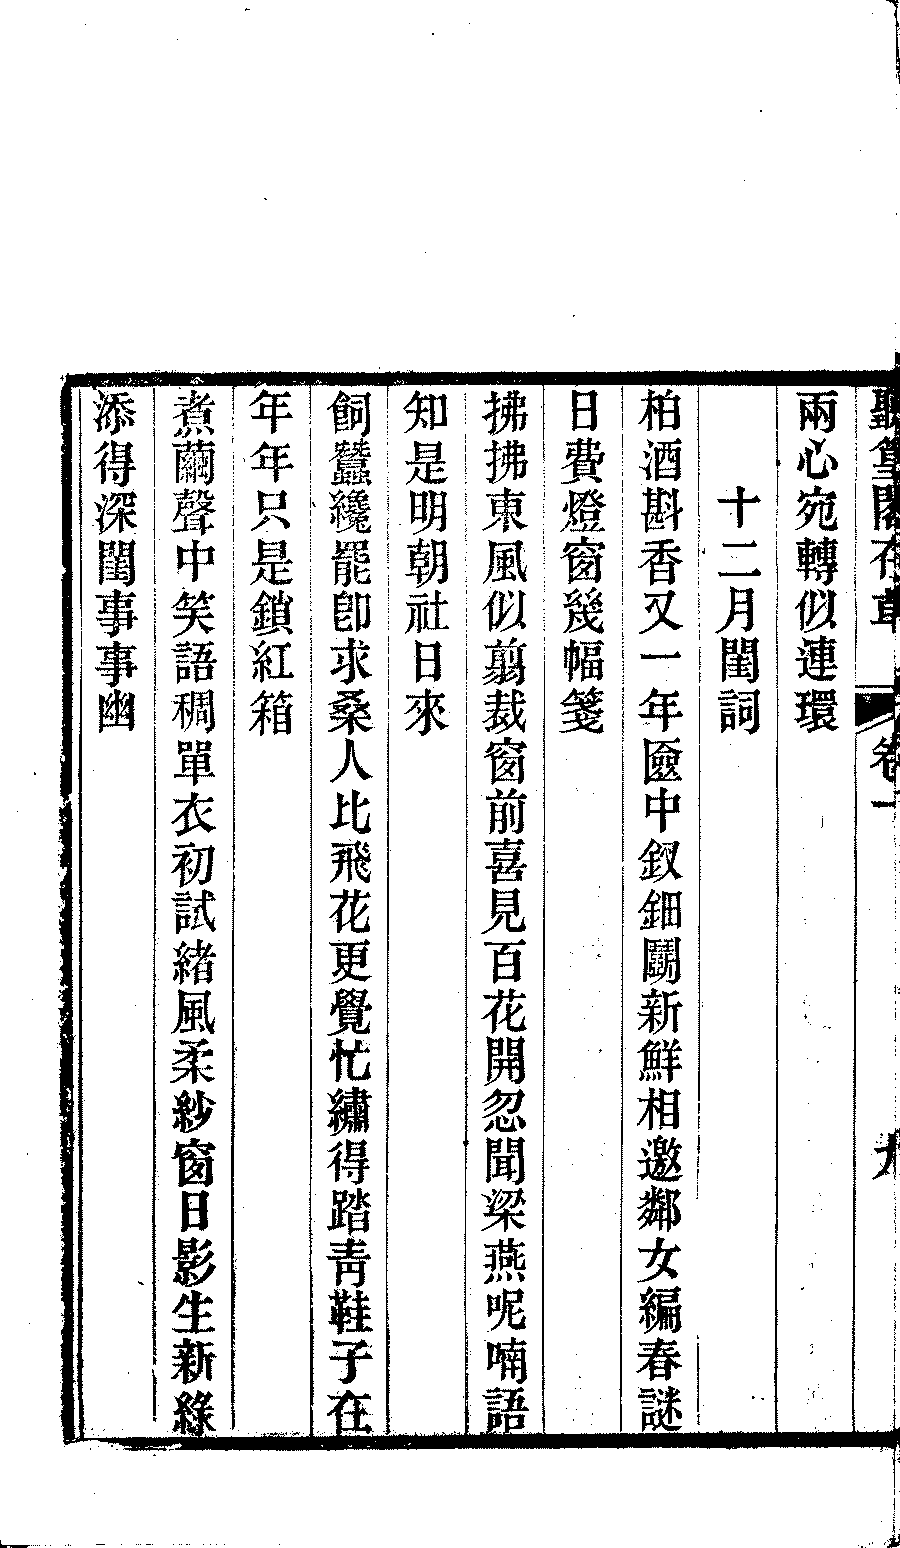 聽篁閣存草 卷一
兩心宛轉似連環
十二月閨詞
柏酒斟香又一年匳中釵鈿鬭新鮮相邀鄰女編春謎
日費燈窗幾幅箋
拂拂東風似翦裁窗前喜見百花開忽聞梁燕呢喃語
知是明朝社日來
飼蠶纔罷卽求桑人比飛花更覺忙繡得踏靑鞋子在
年年只是鎖紅箱
煮繭聲中笑語稠單衣初試緒風柔紗窗日影生新綠
添得深閨事事幽